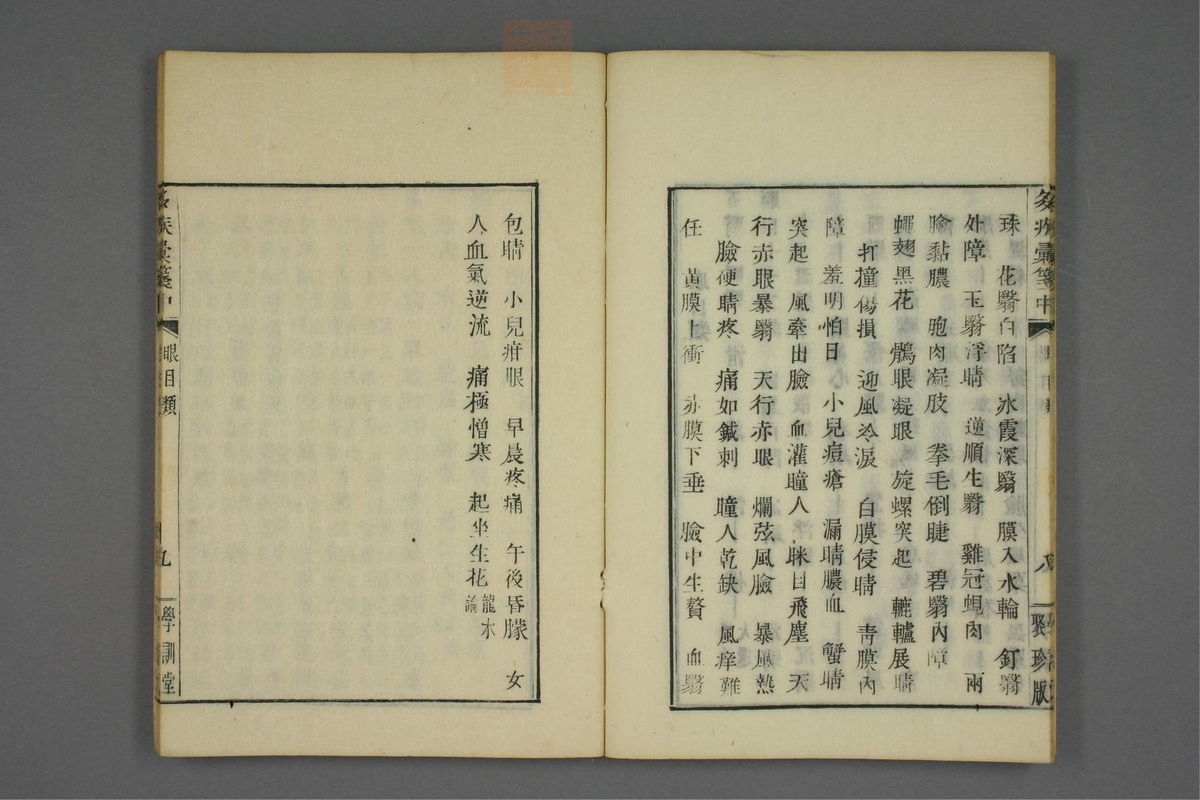 珠　花翳白陷　冰霞深翳　膜入水輪　釘翳
外障　玉翳浮睛　逆順生翳　雞冠蜆肉　兩
臉黏膿　胞肉凝肢　拳毛倒睫　碧翳內障
蠅翅黑花　鶻眼凝眼　旋螺突起　轆轤展睛
打撞傷損　迎風冷淚　白膜侵睛　青膜內
障　羞明怕日　小兒痘瘡　漏睛膿血　蟹睛
突起　風牽出臉　血灌瞳人　眯目飛塵　天
行赤眼暴翳　天行赤眼　爛弦風臉　暴風熱
臉硬睛疼　痛如鍼刺　瞳人乾缺　風痒難
任　黃膜上衝　赤膜下垂　臉中生贅　血翳
包睛　小兒疳眼　早晨疼痛　午後昏朦　女
人血氣逆流　痛極憎寒　起坐生花　龍水論
眼目類
九
學訓堂
八
聚珍版